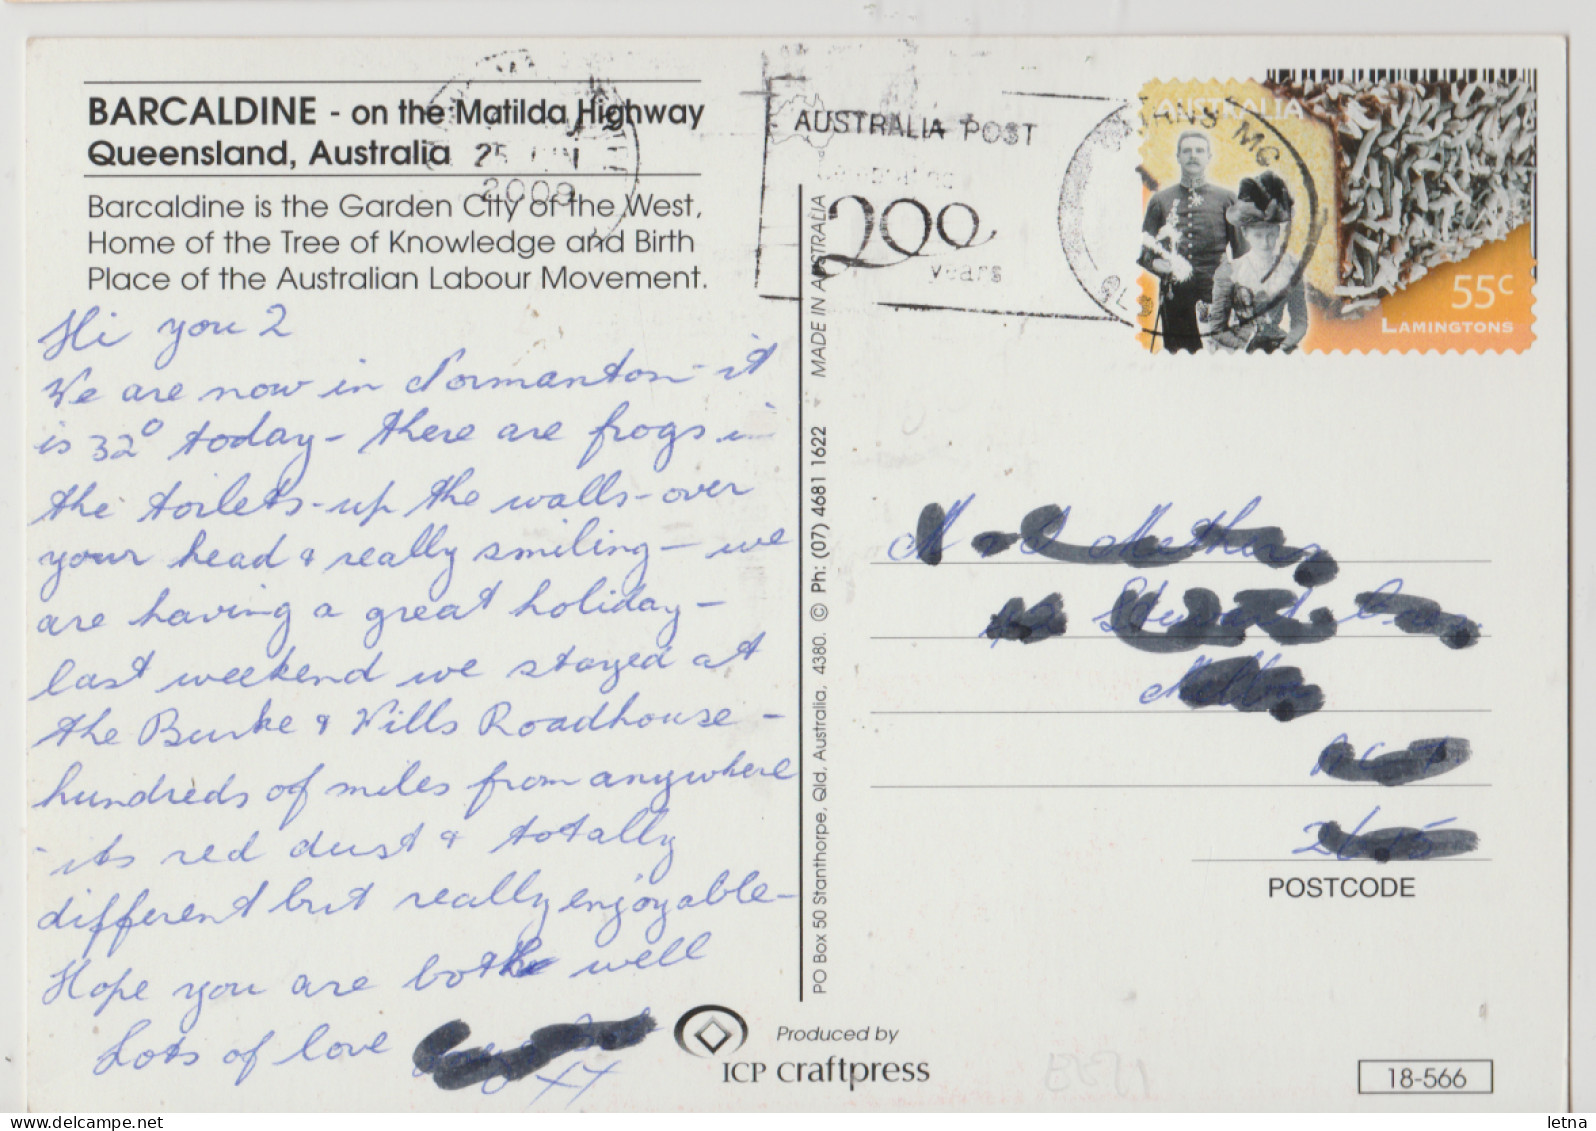 BARCALDINE - on the Matilda Highway
Queensland, Australia
Barcaldine is the Garden City of the West,
Home of the Tree of Knowledge and Birth
Place of the Australian Labour Movement.
Hi you 2
We are now in Normanton - it
is 32° today - there are frogs in
the toilets - up the walls - over
your head & really smiling - we
are having a great holiday -
last weekend we stayed at
the Burke & Wills Roadhouse -
hundreds of miles from anywhere
- its red dust & totally
different but really enjoyable -
Hope you are both well
Lots of love
XX
2009
AUSTRALIA POST
200
years
AUSTRALIA
55c
LAMINGTONS
PO Box 50 Stanthorpe, Qld, Australia, 4380. © Ph: (07) 4681 1622 MADE IN AUSTRALIA
POSTCODE
Produced by
ICP craftpress
18-566
delcampe.net
letna